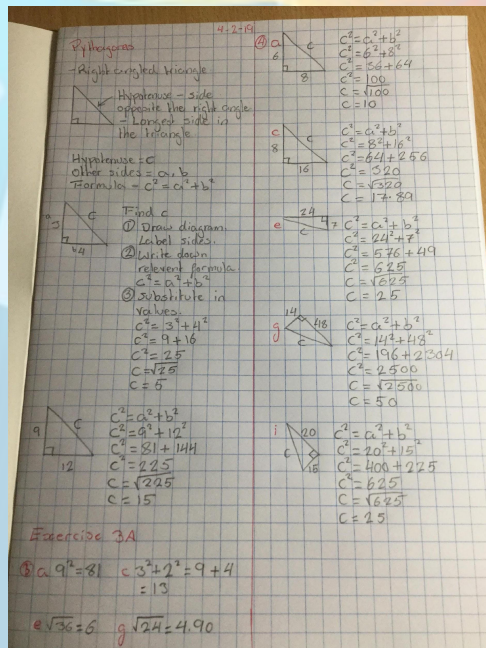 4-2-19
Pythagoras
- Right angled triangle
Hypotenuse - side
opposite the right angle
- Longest side in
the triangle
Hypotenuse = c
other sides = a, b
Formula - c² = a² + b²
3
c
4
Find c
① Draw diagram.
Label sides.
② Write down
relevent formula.
c² = a² + b²
③ Substitute in
values.
c² = 3² + 4²
c² = 9 + 16
c² = 25
c = √25
c = 5
9
c
12
c² = a² + b²
c² = 9² + 12²
c² = 81 + 144
c² = 225
c = √225
c = 15
Exercise 3A
③ a 9² = 81 c 3² + 2² = 9 + 4
= 13
e √36 = 6 g √24 = 4.90
④ a
6
c
8
c² = a² + b²
c² = 6² + 8²
c² = 36 + 64
c² = 100
c = √100
c = 10
c
8
c
16
c² = a² + b²
c² = 8² + 16²
c² = 64 + 256
c² = 320
c = √320
c = 17.89
e
24
7
c
c² = a² + b²
c² = 24² + 7²
c² = 576 + 49
c² = 625
c = √625
c = 25
g
14
48
c
c² = a² + b²
c² = 14² + 48²
c² = 196 + 2304
c² = 2500
c = √2500
c = 50
i
20
c
15
c² = a² + b²
c² = 20² + 15²
c² = 400 + 225
c² = 625
c = √625
c = 25